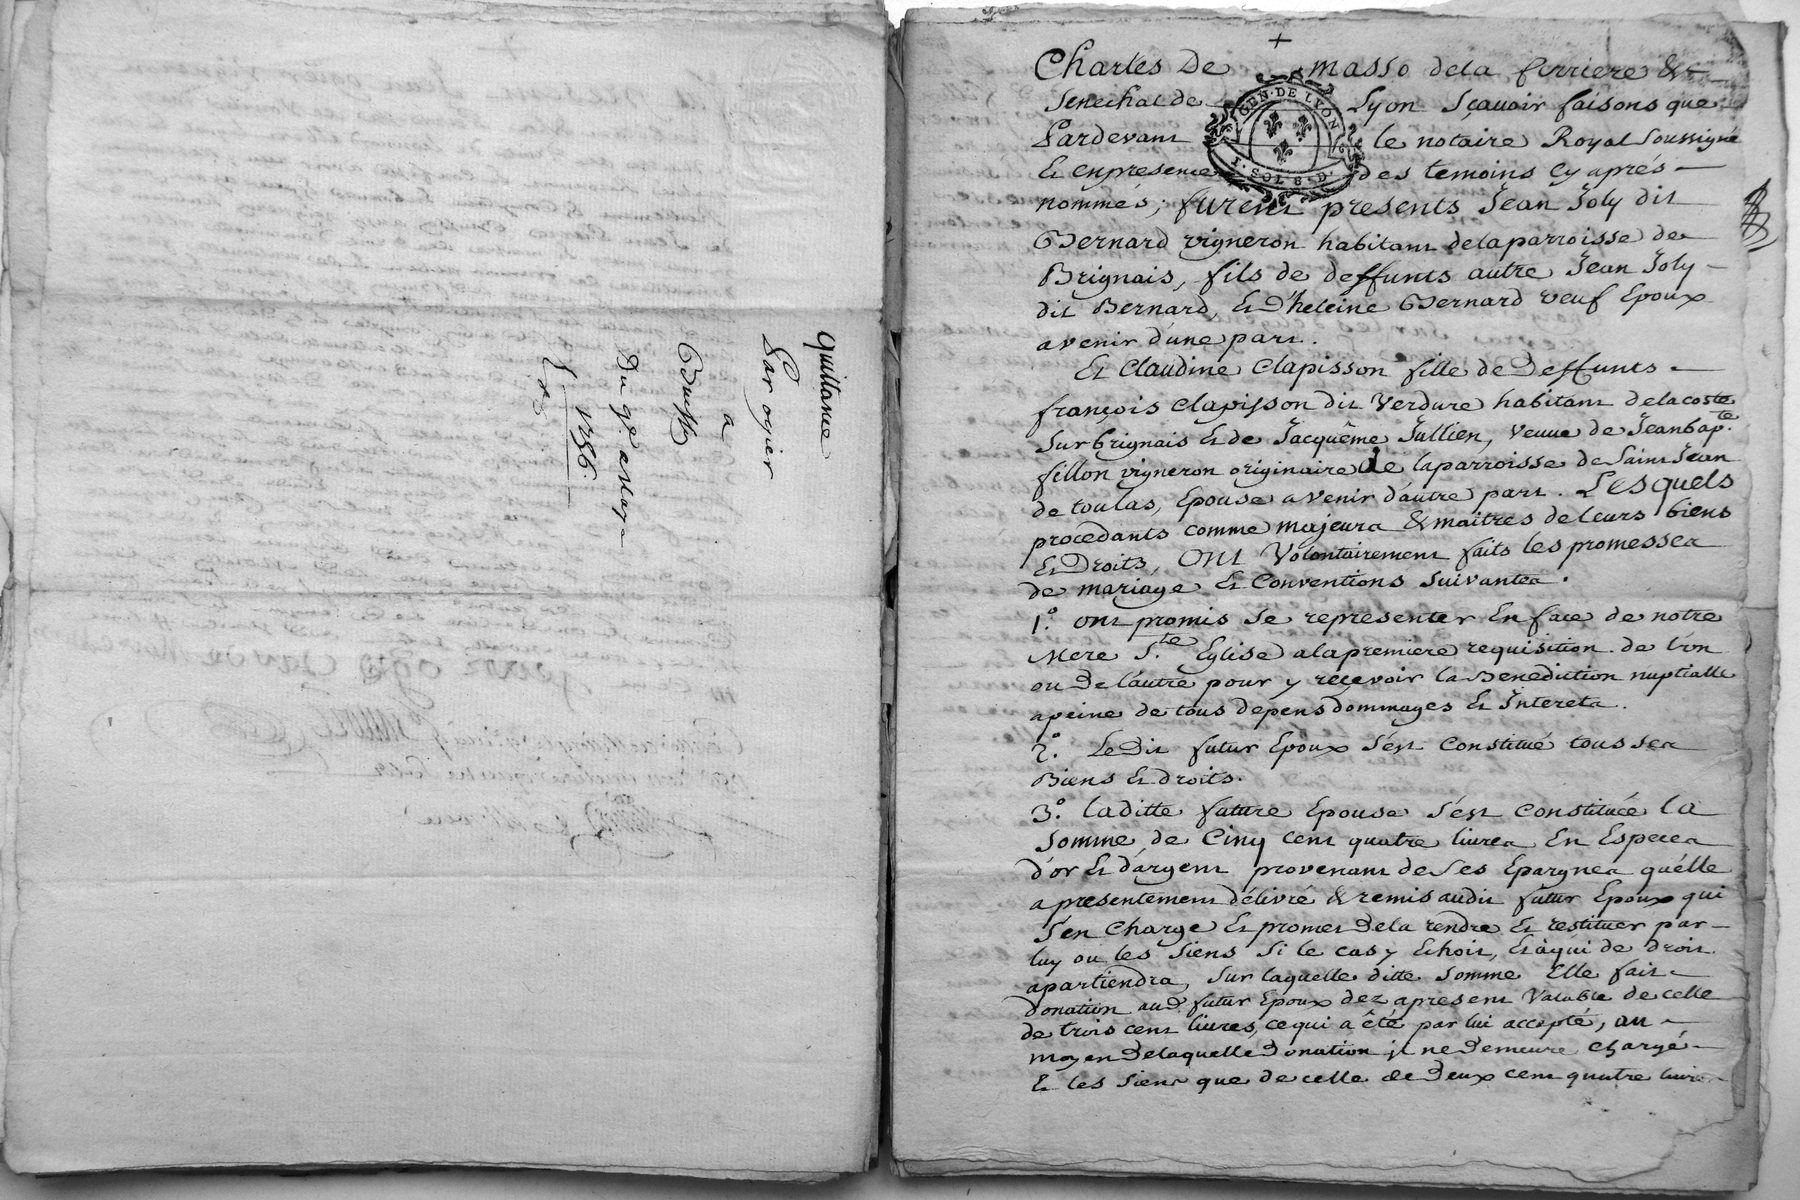 quittance
Par ogier
a
Du 9e. 
1786.
+
Charles De masso dela ferriere &
Senechal de Lyon Sçavoir faisons que
Pardevant le notaire Royal Soussigné
Et enpresence des temoins cy aprés
nommés; furent presents Jean Joly dit
Bernard vigneron habitant delaparroisse de
Brignais, fils de deffunts autre Jean Joly
dit Bernard, Et D'heleine Bernard veuf Epoux
avenir d'une part.
Et Claudine Clapisson fille de Deffunts
françois Clapisson dit Verdure habitant delacoste
Sur brignais Et de Jacquême Jullien, veuve de Jeanbapte.
fillon vigneron originaire de laparroisse de Saint Jean
de toulas, Epouse avenir d'autre part. Lesquels
procedants comme majeurs & maitres de leurs biens
Et Droits, Ont Volontairement faits les promesses
de mariage Et Conventions Suivantes.
1°. ont promis Se representer En face de notre
Mere Ste. Eglise alapremiere requisition de l'on
ou De l'autre pour y reçevoir la Benediction nuptialle
apeine de tous depens dommages Et Interets.
2°. LeDit futur Epoux S'est Constitué tous ses
Biens Et droits.
3°. laditte future Epouse S'est Constituée la
Somme de Cinq cent quatre livres En Especes
d'or Et d'argent provenant de Ses Epargnes quélle
apresentement délivré & remis audit futur Epoux qui
S'en Charge Et promet Dela rendre Et restituer par
luy ou les Siens Si le cas y Echoit, Et àqui de droit
apartiendra, Sur laquelle ditte Somme Elle fait
Donation aud. futur Epoux dez apresent Valable de celle
de trois cent livres, cequi a êté par lui accepté, au
moyen Delaquelle Donation il ne Demeure chargé
Et les Siens que de celle de Deux cent quatre livres
GEN. DE LYON
I. SOL 8. D.